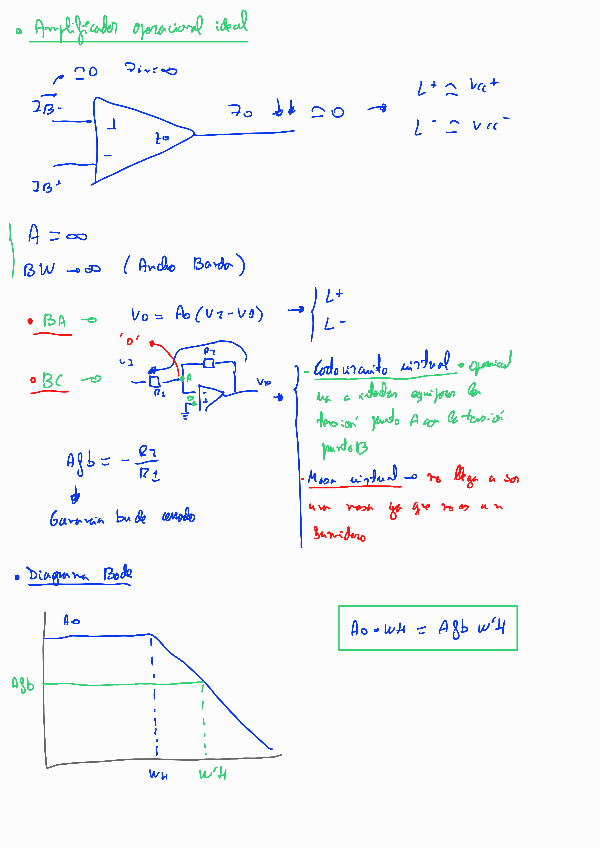 • Amplificador operacional ideal
≃0 Zin=∞
IB-
Zo ↓↓ ≃ 0 →
L+ ≃ Vcc+
L- ≃ Vcc-
+
Zo
-
IB+
A = ∞
BW → ∞ (Ancho Banda)
• BA → Vo = Ao (V2 - V1) → L+
L-
"0"
• BC →
V1
R1
R2
A
Vo
- Cortocircuito virtual → operacional
va a intentar equiparar la
tensión punto A con la tensión
punto B
- Masa virtual → no llega a ser
una masa ya que no es un
sumidero
Afb = - R2/R1
Ganancia bucle cerrado
• Diagrama Bode
Ao
Afb
WH
W'H
Ao · WH = Afb W'H